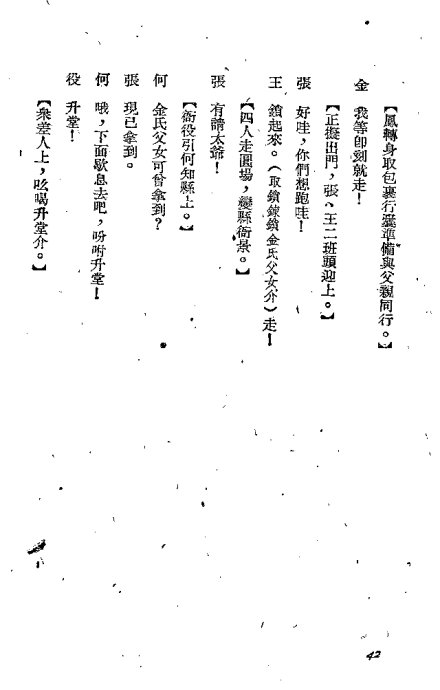 【鳳轉身取包裹行囊準備與父親同行。】
金 我等即刻就走！
【正擬出門，張、王二班頭迎上。】
張 好哇，你們想跑哇！
王 鎖起來。（取鎖鍊鎖金氏父女介）走！
【四人走圓場，變縣衙景。】
張 有請太爺！
【衙役引何知縣上。】
何 金氏父女可曾拿到？
張 現已拿到。
何 哦，下面歇息去吧，吩咐升堂！
役 升堂！
【衆差人上，吆喝升堂介。】
42